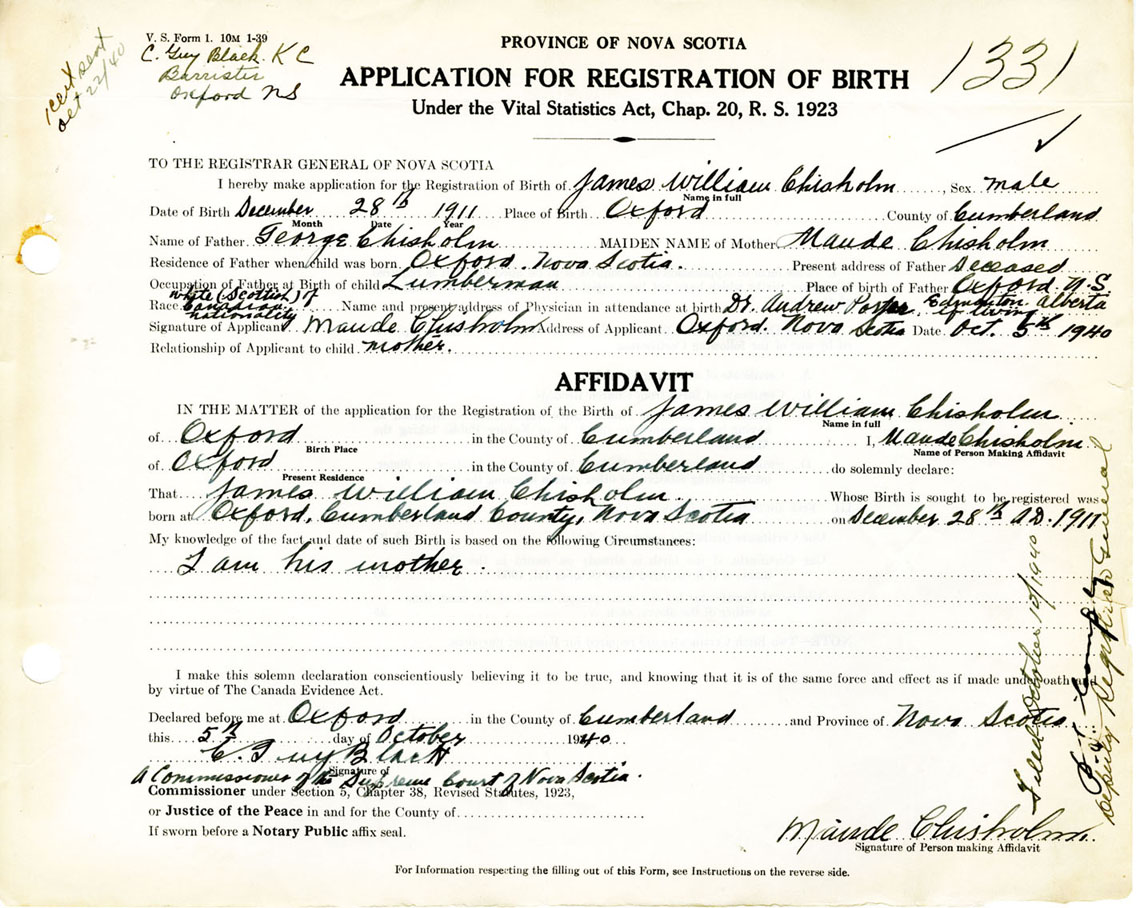 V. S. Form 1. 10M 1-39
C. Guy Black. K C
Barrister
Oxford NS
1 cert sent
Oct 22/40
PROVINCE OF NOVA SCOTIA
APPLICATION FOR REGISTRATION OF BIRTH
Under the Vital Statistics Act, Chap. 20, R. S. 1923
1331
TO THE REGISTRAR GENERAL OF NOVA SCOTIA
I hereby make application for the Registration of Birth of James William Chisholm, Sex male
Name in full
Date of Birth December 28th 1911 Place of Birth Oxford County of Cumberland
Month Date Year
Name of Father George Chisholm MAIDEN NAME of Mother Maude Chisholm
Residence of Father when child was born Oxford. Nova Scotia. Present address of Father Deceased
Occupation of Father at Birth of child Lumberman Place of birth of Father Oxford N.S.
Race white (Scottish) of Canadian nationality Name and present address of Physician in attendance at birth Dr. Andrew Porter, Edmonton Alberta if living
Signature of Applicant Maude Chisholm Address of Applicant Oxford. Nova Scotia Date Oct. 5th 1940
Relationship of Applicant to child mother.
AFFIDAVIT
IN THE MATTER of the application for the Registration of the Birth of James William Chisholm
Name in full
of Oxford in the County of Cumberland I, Maude Chisholm
Birth Place Name of Person Making Affidavit
of Oxford in the County of Cumberland do solemnly declare:
Present Residence
That James William Chisholm Whose Birth is sought to be registered was
born at Oxford, Cumberland County, Nova Scotia on December 28th A.D. 1911
My knowledge of the fact and date of such Birth is based on the following Circumstances:
I am his mother.
I make this solemn declaration conscientiously believing it to be true, and knowing that it is of the same force and effect as if made under oath and
by virtue of The Canada Evidence Act.
Declared before me at Oxford in the County of Cumberland and Province of Nova Scotia
this 5th day of October 1940
C. Guy Black
Signature of
A Commissioner of the Supreme Court of Nova Scotia.
Commissioner under Section 5, Chapter 38, Revised Statutes, 1923,
or Justice of the Peace in and for the County of
If sworn before a Notary Public affix seal.
Maude Chisholm
Signature of Person making Affidavit
For Information respecting the filling out of this Form, see Instructions on the reverse side.
Filed October 10/1940
Deputy Registrar General